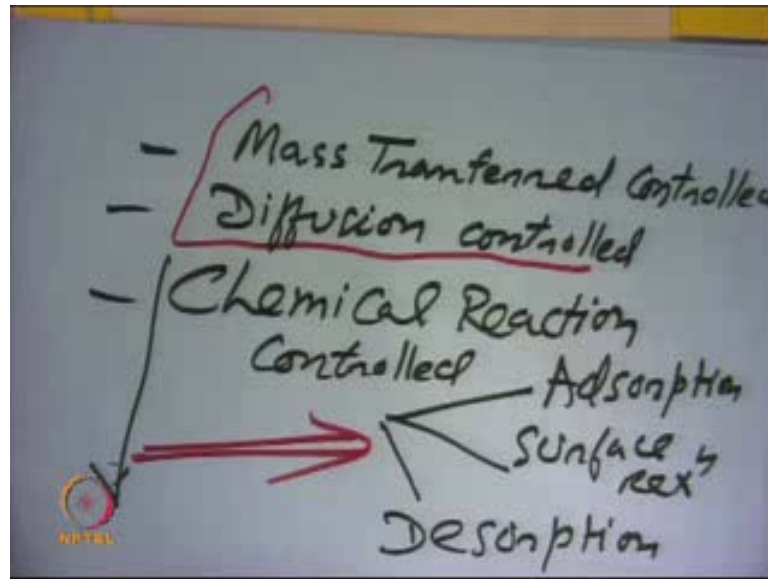 - Mass Tranferred Controlled
- Diffusion controlled
- Chemical Reaction
Controlled
Adsorption
Surface rexⁿ
Desorption
NPTEL